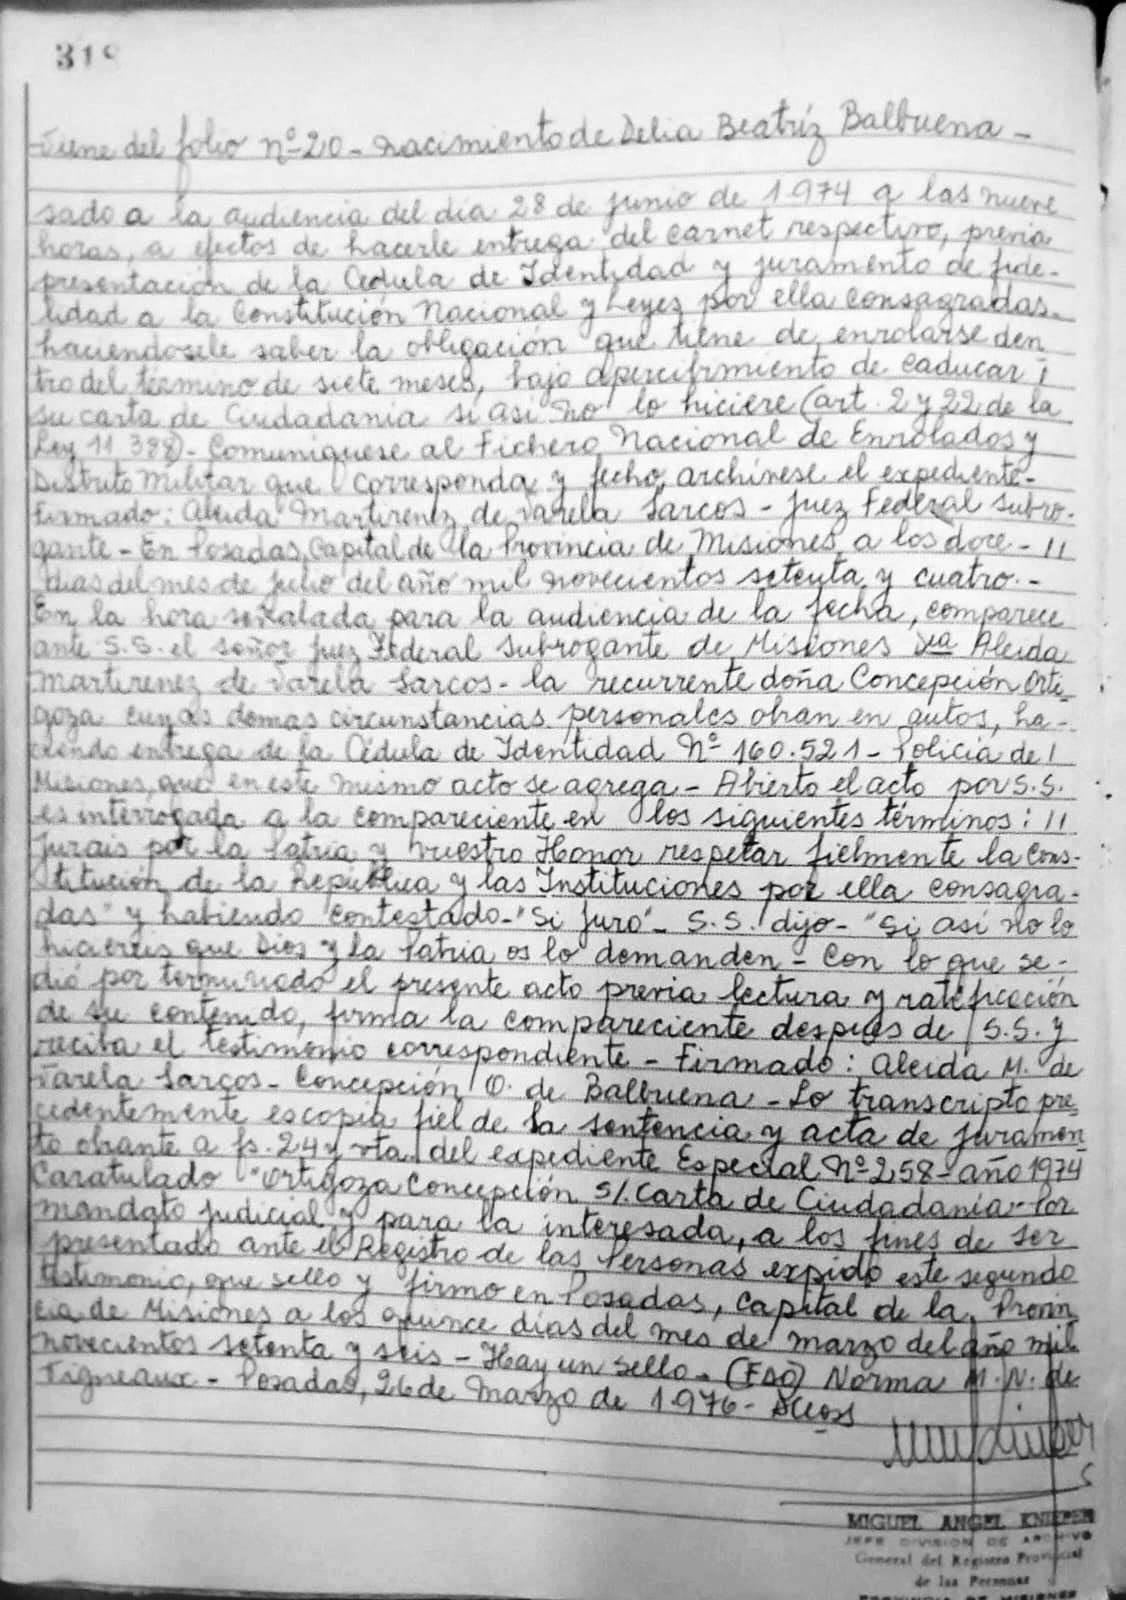 318
Viene del folio Nº 20 - Nacimiento de Delia Beatríz Balbuena -
sado a la audiencia del día 28 de junio de 1974 a las nueve
horas, a efectos de hacerle entrega del carnet respectivo, previa
presentación de la Cédula de Identidad y juramento de fide-
lidad a la Constitución Nacional y Leyes por ella consagradas.
haciendosele saber la obligación que tiene de enrolarse den
tro del término de siete meses, bajo apercibimiento de caducar
su carta de Ciudadanía si así no lo hiciere (art. 2 y 22 de la
Ley 11 388) - Comuniquese al Fichero Nacional de Enrolados y
Distrito Militar que corresponda y fecho, archívese el expediente -
Firmado: Aleida Martirenez de Varela Sarcos - Juez Federal Subro-
gante - En Posadas, Capital de la Provincia de Misiones, a los doce - 11
dias del mes de julio del año mil novecientos setenta y cuatro. -
En la hora señalada para la audiencia de la fecha, comparece
ante S.S. el señor Juez Federal Subrogante de Misiones Dra Aleida
Martirenez de Varela Sarcos - la recurrente doña Concepción Orti-
goza cuyas demas circunstancias personales obran en autos, ha-
ciendo entrega de la Cédula de Identidad Nº 160.521 - Policia de
Misiones, que en este mismo acto se agrega - Abierto el acto por S.S.
es interrogada a la compareciente en los siguientes términos: 11
Jurais por la Patria y vuestro Honor respetar fielmente la Cons-
titución de la República y las Instituciones por ella consagra-
das" y habiendo contestado - "Si Juro" - S.S. dijo - "Si así no lo
hiciereis que Dios y la Patria os lo demanden - Con lo que se -
dió por terminado el presente acto previa lectura y ratificación
de su contenido, firma la compareciente despues de S.S. y
reciba el testimonio correspondiente - Firmado: Aleida M. de
Varela Sarcos - Concepción O. de Balbuena - Lo transcripto pre-
cedentemente es copia fiel de la sentencia y acta de juramen
to obrante a fs. 24 y vta. del expediente Especial Nº 258 - año 1974
Caratulado "Ortigoza Concepción S/. Carta de Ciudadanía - Por
mandato judicial y para la interesada, a los fines de ser
presentado ante el Registro de las Personas expido este segundo
testimonio, que sello y firmo en Posadas, Capital de la Provin
cia de Misiones a los quince dias del mes de marzo del año mil
novecientos setenta y seis - Hay un sello - (FDO) Norma M. N. de
Tigneaux - Posadas, 26 de Marzo de 1976 -
MIGUEL ANGEL KNIEPER
JEFE DIVISION DE ARCHIVO
General del Registro Provincial
de las Personas
PROVINCIA DE MISIONES